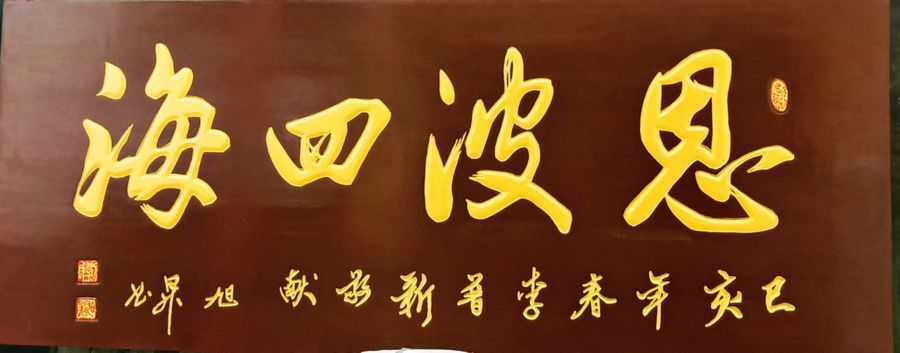 恩波四海
己亥年春李新敬献 旭昇书